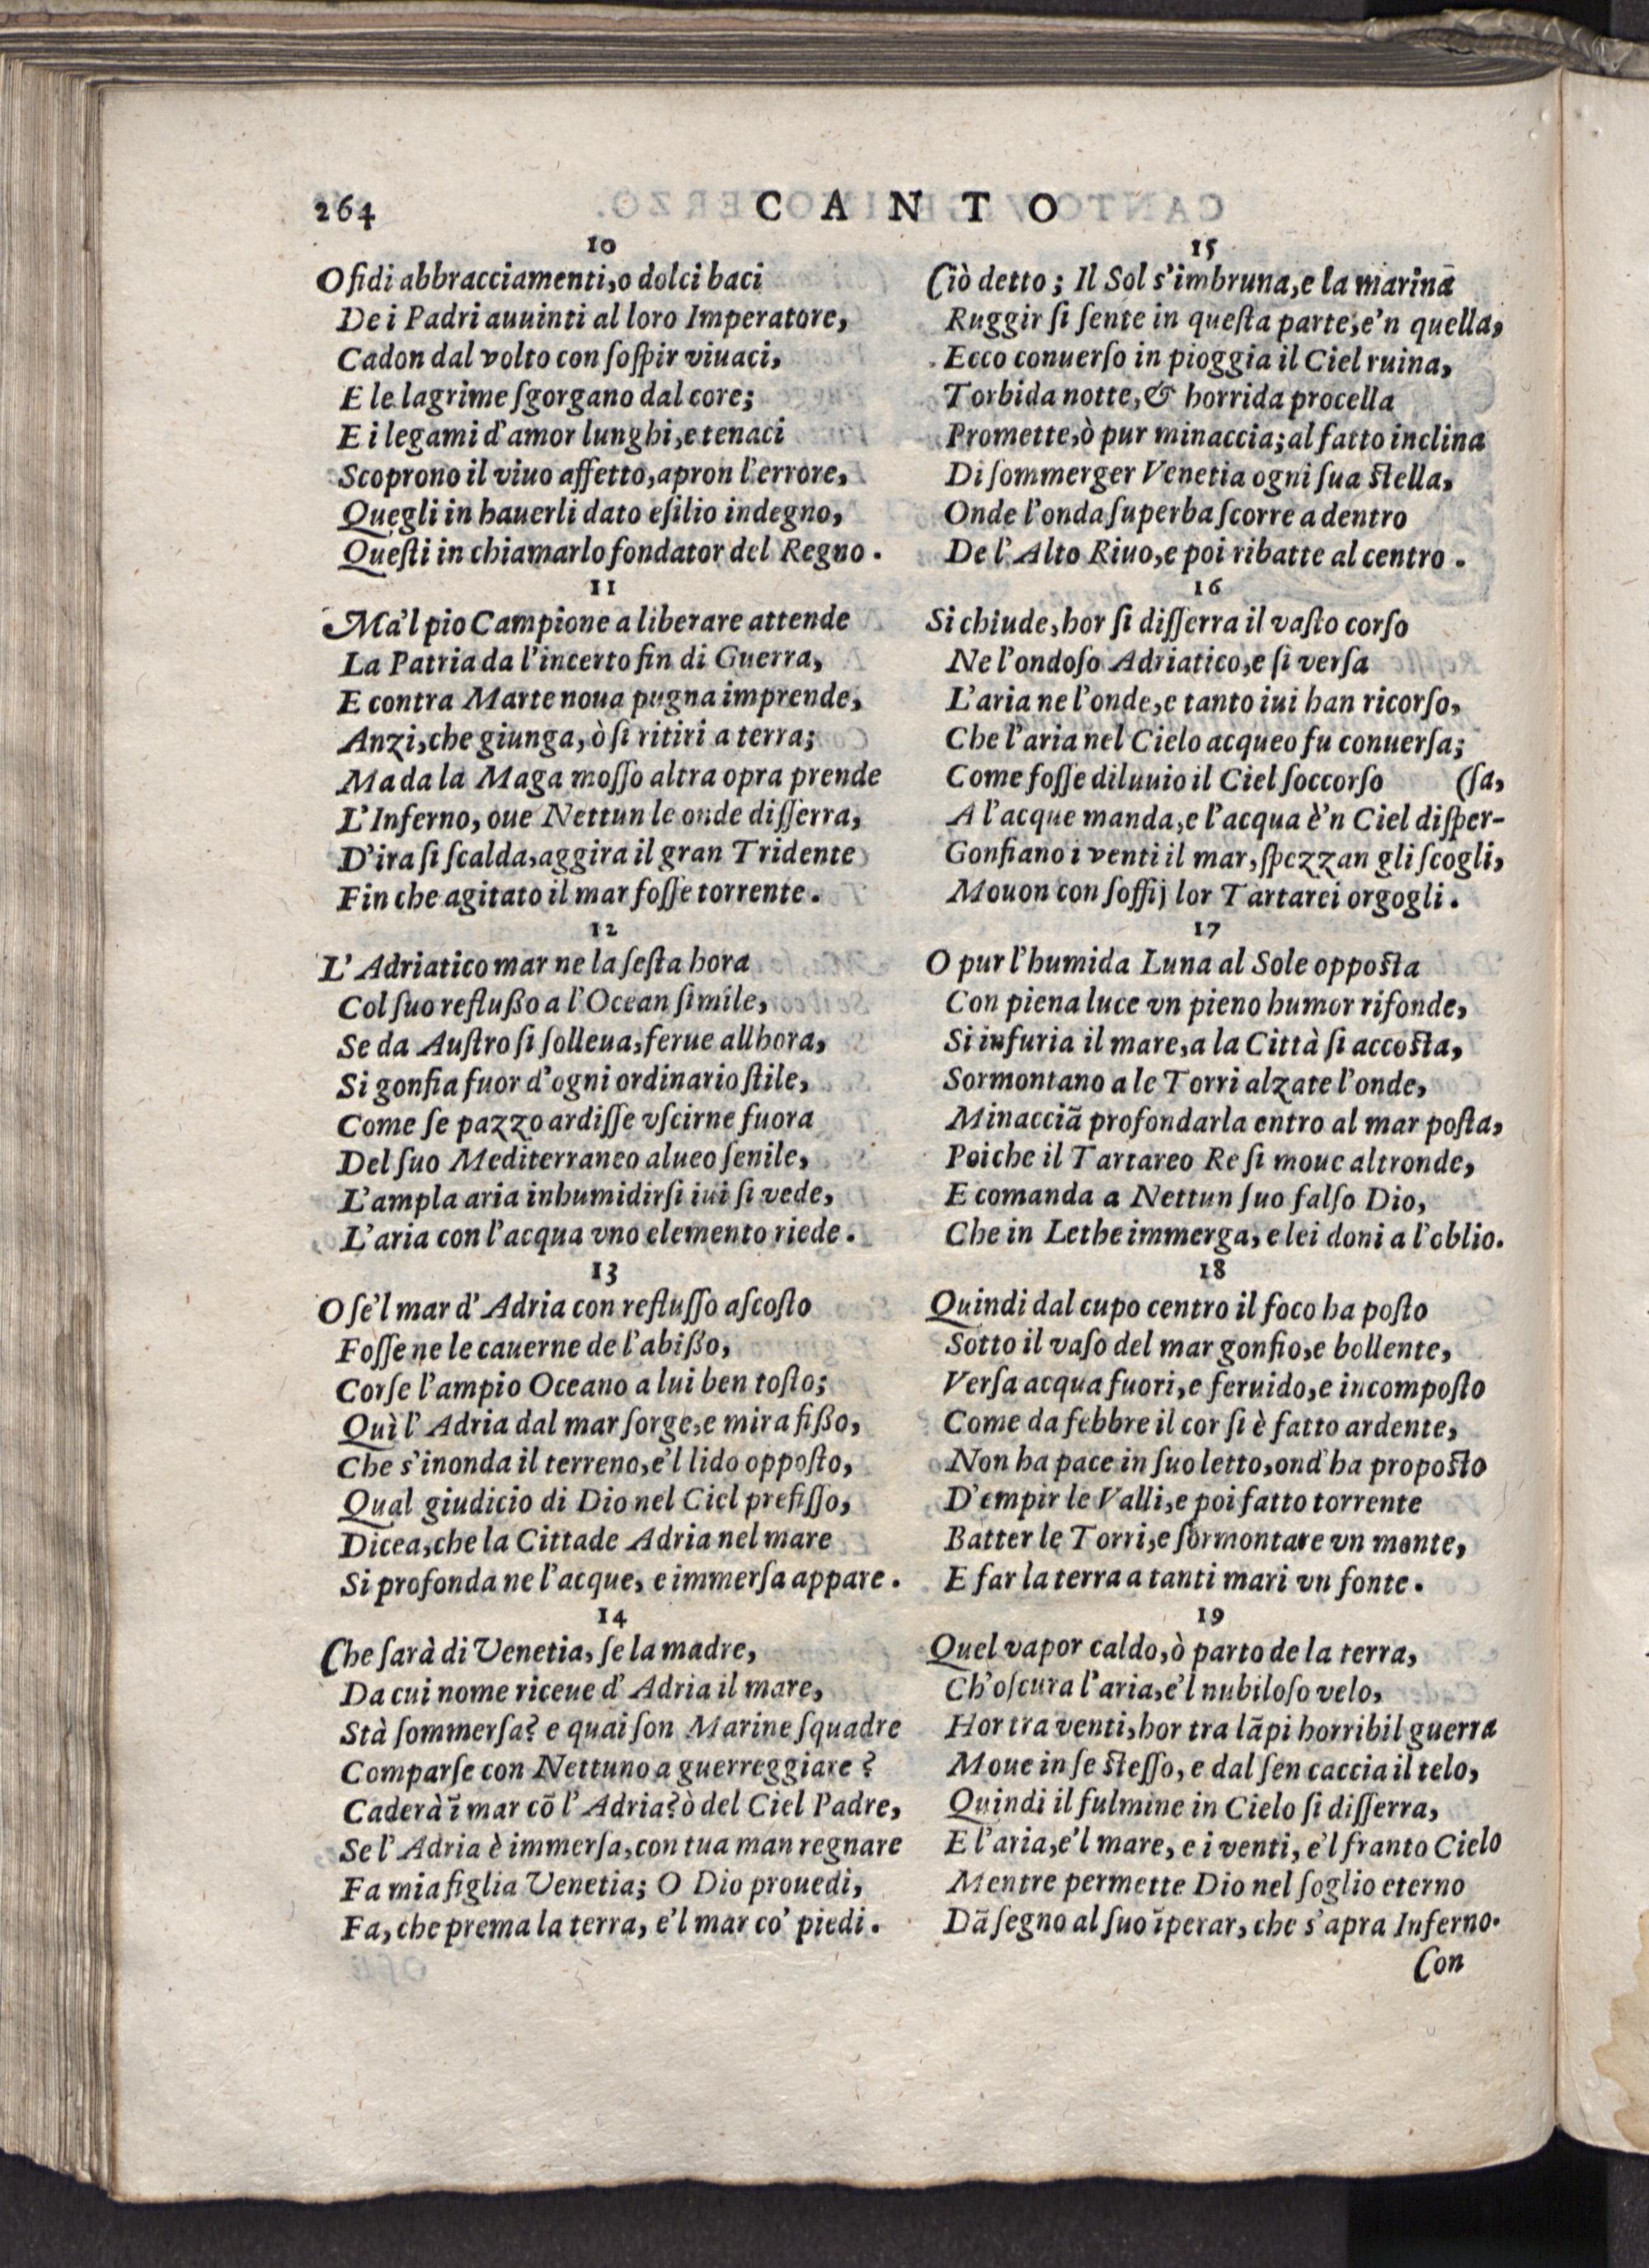 264
CANTO
10
O fidi abbracciamenti, o dolci baci
De i Padri auuinti al loro Imperatore,
Cadon dal volto con ſoſpir viuaci,
E le lagrime ſgorgano dal core;
E i legami d'amor lunghi, e tenaci
Scoprono il viuo affetto, apron l'errore,
Quegli in hauerli dato eſilio indegno,
Queſti in chiamarlo fondator del Regno.
11
Ma'l pio Campione a liberare attende
La Patria da l'incerto fin di Guerra,
E contra Marte noua pugna imprende,
Anzi, che giunga, ò ſi ritiri a terra;
Ma da la Maga moſſo altra opra prende
L'Inferno, oue Nettun le onde diſſerra,
D'ira ſi ſcalda, aggira il gran Tridente
Fin che agitato il mar foſſe torrente.
12
L'Adriatico mar ne la ſeſta hora
Col ſuo reflußo a l'Ocean ſimile,
Se da Auſtro ſi ſolleua, ferue allhora,
Si gonfia fuor d'ogni ordinario ſtile,
Come ſe pazzo ardiſſe vſcirne fuora
Del ſuo Mediterraneo alueo ſenile,
L'ampla aria inhumidirſi iui ſi vede,
L'aria con l'acqua vno elemento riede.
13
O ſe'l mar d'Adria con refluſſo aſcoſto
Foſſe ne le cauerne de l'abißo,
Corſe l'ampio Oceano a lui ben toſto;
Quì l'Adria dal mar ſorge, e mira fißo,
Che s'inonda il terreno, e'l lido oppoſto,
Qual giudicio di Dio nel Ciel prefiſſo,
Dicea, che la Cittade Adria nel mare
Si profonda ne l'acque, e immerſa appare.
14
Che ſarà di Venetia, ſe la madre,
Da cui nome riceue d'Adria il mare,
Stà ſommerſa? e quai ſon Marine ſquadre
Comparſe con Nettuno a guerreggiare?
Caderà ĩ mar cõ l'Adria? ò del Ciel Padre,
Se l'Adria è immerſa, con tua man regnare
Fa mia figlia Venetia; O Dio prouedi,
Fa, che prema la terra, e'l mar co' piedi.
15
Ciò detto; Il Sol s'imbruna, e la marina
Ruggir ſi ſente in queſta parte, e'n quella,
Ecco conuerſo in pioggia il Ciel ruina,
Torbida notte, & horrida procella
Promette, ò pur minaccia; al fatto inclina
Di ſommerger Venetia ogni ſua ſtella,
Onde l'onda ſuperba ſcorre a dentro
De l'Alto Riuo, e poi ribatte al centro.
16
Si chiude, hor ſi diſſerra il vaſto corſo
Ne l'ondoſo Adriatico, e ſi verſa
L'aria ne l'onde, e tanto iui han ricorſo,
Che l'aria nel Cielo acqueo fu conuerſa;
Come foſſe diluuio il Ciel ſoccorſo (ſa,
A l'acque manda, e l'acqua è'n Ciel diſper-
Gonfiano i venti il mar, ſpezzan gli ſcogli,
Mouon con ſoffij lor Tartarei orgogli.
17
O pur l'humida Luna al Sole oppoſta
Con piena luce vn pieno humor rifonde,
Si infuria il mare, a la Città ſi accoſta,
Sormontano a le Torri alzate l'onde,
Minacciã profondarla entro al mar poſta,
Poiche il Tartareo Re ſi moue altronde,
E comanda a Nettun ſuo falſo Dio,
Che in Lethe immerga, e lei doni a l'oblio.
18
Quindi dal cupo centro il foco ha poſto
Sotto il vaſo del mar gonfio, e bollente,
Verſa acqua fuori, e feruido, e incompoſto
Come da febbre il cor ſi è fatto ardente,
Non ha pace in ſuo letto, ond'ha propoſto
D'empir le Valli, e poi fatto torrente
Batter le Torri, e ſormontare vn monte,
E far la terra a tanti mari vn fonte.
19
Quel vapor caldo, ò parto de la terra,
Ch'oſcura l'aria, e'l nubiloſo velo,
Hor tra venti, hor tra lãpi horribil guerra
Moue in ſe ſteſſo, e dal ſen caccia il telo,
Quindi il fulmine in Cielo ſi diſſerra,
E l'aria, e'l mare, e i venti, e'l franto Cielo
Mentre permette Dio nel ſoglio eterno
Dã ſegno al ſuo ĩperar, che s'apra Inferno.
Con